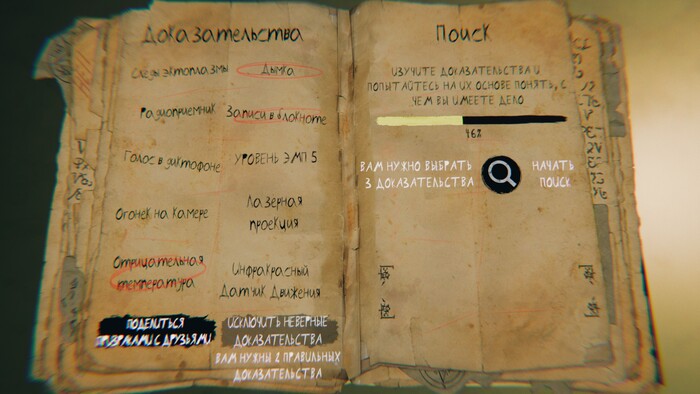 Доказательства
Следы эктоплазмы
Дымка
Радиоприемник
Записи в блокноте
Голос в диктофоне
Уровень ЭМП 5
Огонек на камере
Лазерная
проекция
Отрицательная
температура
Инфракрасный
Датчик Движения
ПОДЕЛИТЬСЯ
С ДРУЗЬЯМИ
ИСКЛЮЧИТЬ НЕВЕРНЫЕ
ДОКАЗАТЕЛЬСТВА
ВАМ НУЖНЫ 2 ПРАВИЛЬНЫХ
ДОКАЗАТЕЛЬСТВА
Поиск
ИЗУЧИТЕ ДОКАЗАТЕЛЬСТВА И
ПОПЫТАЙТЕСЬ НА ИХ ОСНОВЕ ПОНЯТЬ, С
ЧЕМ ВЫ ИМЕЕТЕ ДЕЛО
46%
ВАМ НУЖНО ВЫБРАТЬ
3 ДОКАЗАТЕЛЬСТВА
НАЧАТЬ
ПОИСК